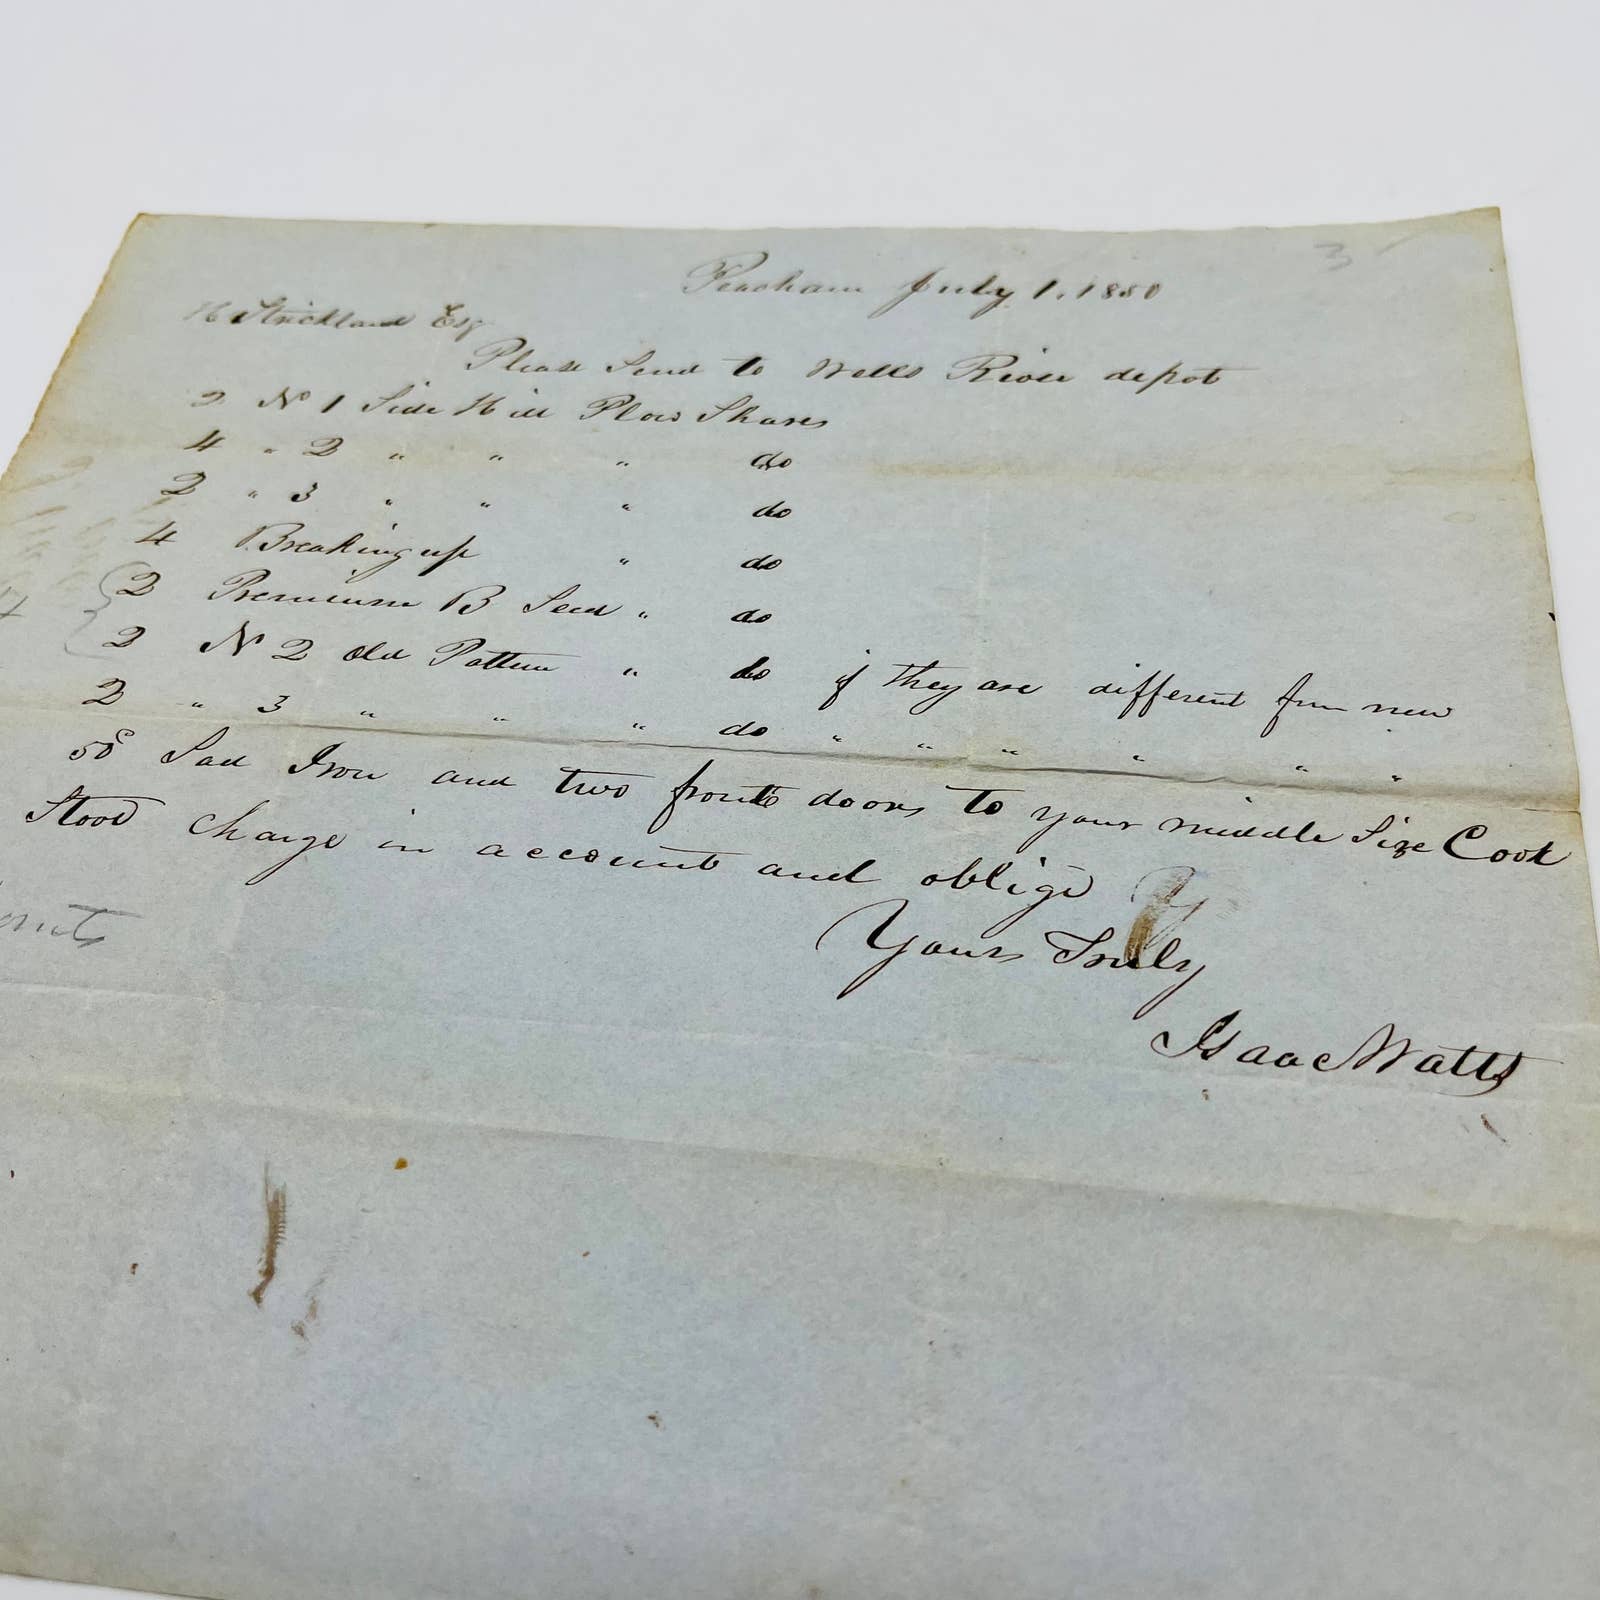 3
Peacham July 1. 1850
H Strickland Esq
Please Send to Wells River depot
2 No 1 Side Hill Plow Shares
4 " 2 " " " do
2 " 3 " " " do
4 Breaking up " do
2 Premium B Seed " do
2 No 2 Old Pattern " do if they are different from new
2 " 3 " " " do " " " " " "
Sad Iron and two front doors to your middle Size Cook
Stove Charge in account and oblige Y
Yours Truly
Isaac Watts